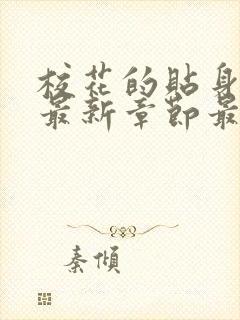 校花的貼身
最新章節最
秦傾